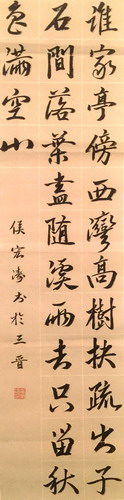 誰家亭傍西灣高樹扶疏出子
石間落葉盡隨溪雨去只留秋
色滿空山
侯宏濤书於三晉